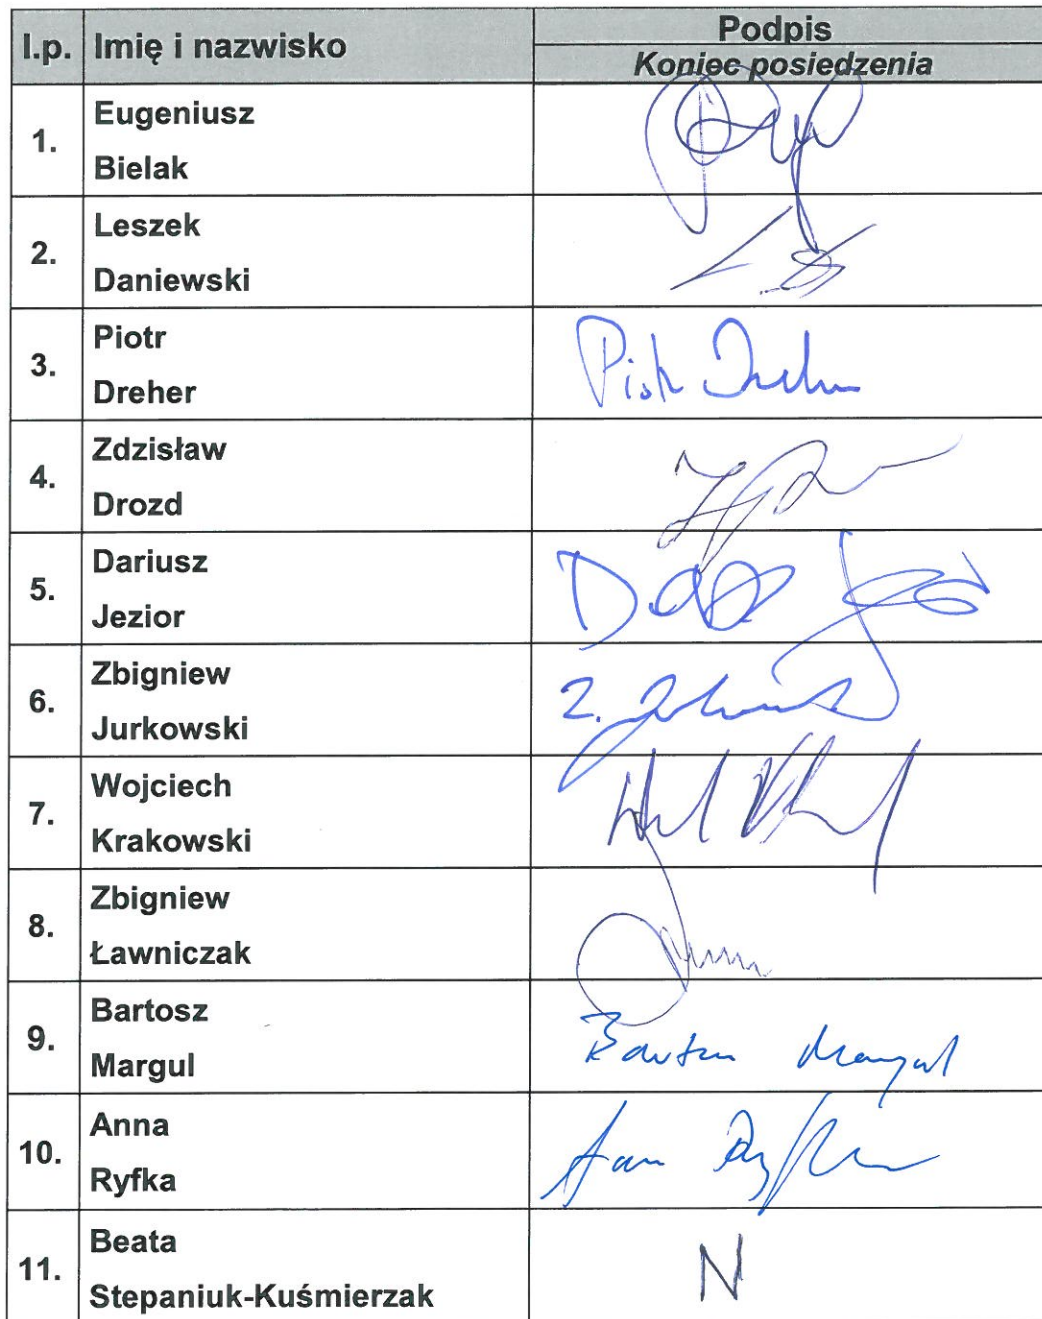 l.p. Imię i nazwisko Podpis
Koniec posiedzenia
1. Eugeniusz
Bielak
2. Leszek
Daniewski
3. Piotr
Dreher
Piotr Dreher
4. Zdzisław
Drozd
5. Dariusz
Jezior
6. Zbigniew
Jurkowski
7. Wojciech
Krakowski
8. Zbigniew
Ławniczak
9. Bartosz
Margul
Bartosz Margul
10. Anna
Ryfka
11. Beata
Stepaniuk-Kuśmierzak
N